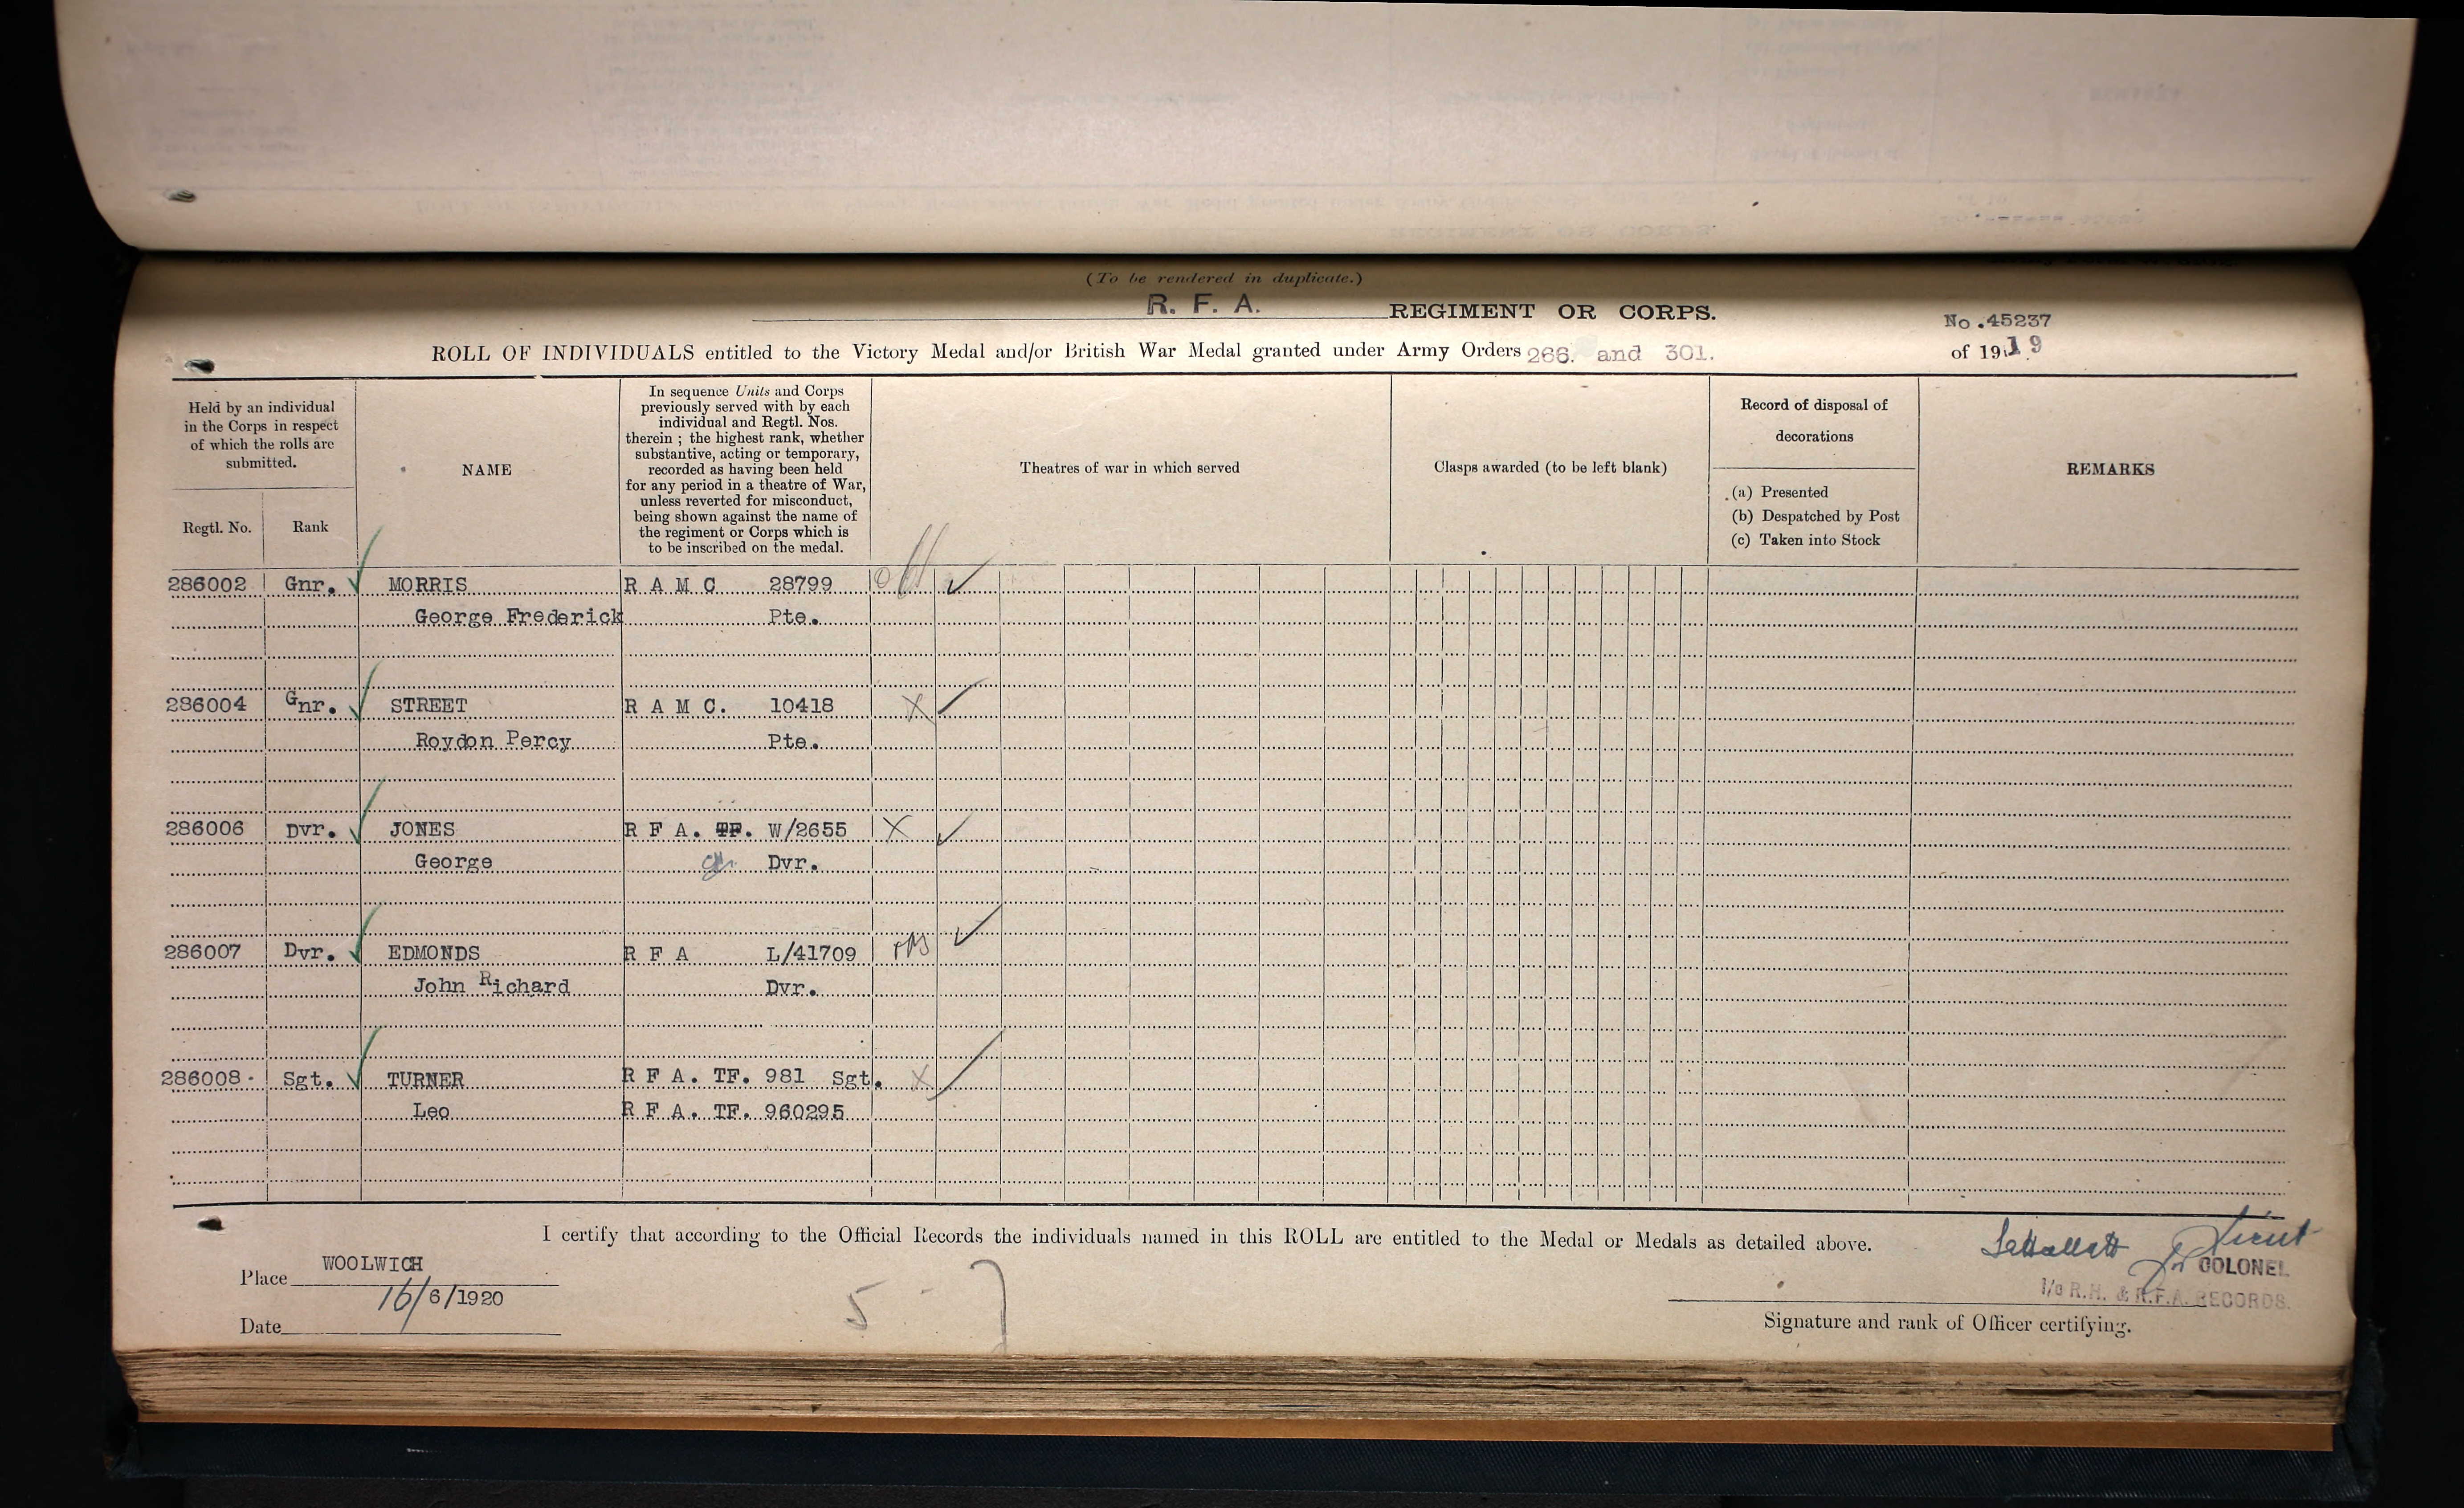 (To be rendered in duplicate.)
R. F. A. REGIMENT OR CORPS.
No.45237
ROLL OF INDIVIDUALS entitled to the Victory Medal and/or British War Medal granted under Army Orders 266. and 301.
of 1919
Held by an individual
in the Corps in respect
of which the rolls are
submitted.
Regtl. No.
Rank
NAME
In sequence Units and Corps
previously served with by each
individual and Regtl. Nos.
therein ; the highest rank, whether
substantive, acting or temporary,
recorded as having been held
for any period in a theatre of War,
unless reverted for misconduct,
being shown against the name of
the regiment or Corps which is
to be inscribed on the medal.
Theatres of war in which served
Clasps awarded (to be left blank)
Record of disposal of
decorations
(a) Presented
(b) Despatched by Post
(c) Taken into Stock
REMARKS
286002 Gnr. MORRIS R A M C 28799
George Frederick Pte.
286004 Gnr. STREET R A M C. 10418 X
Roydon Percy Pte.
286006 Dvr. JONES R F A. TF. W/2655 X
George Dvr.
286007 Dvr. EDMONDS R F A L/41709
John Richard Dvr.
286008 Sgt. TURNER R F A. TF. 981 Sgt. X
Leo R F A. TF. 960295
I certify that according to the Official Records the individuals named in this ROLL are entitled to the Medal or Medals as detailed above.
Lieut
Place WOOLWICH
for COLONEL
I/c R.H. & R.F.A. RECORDS.
Date 16/6/1920
5
Signature and rank of Officer certifying.